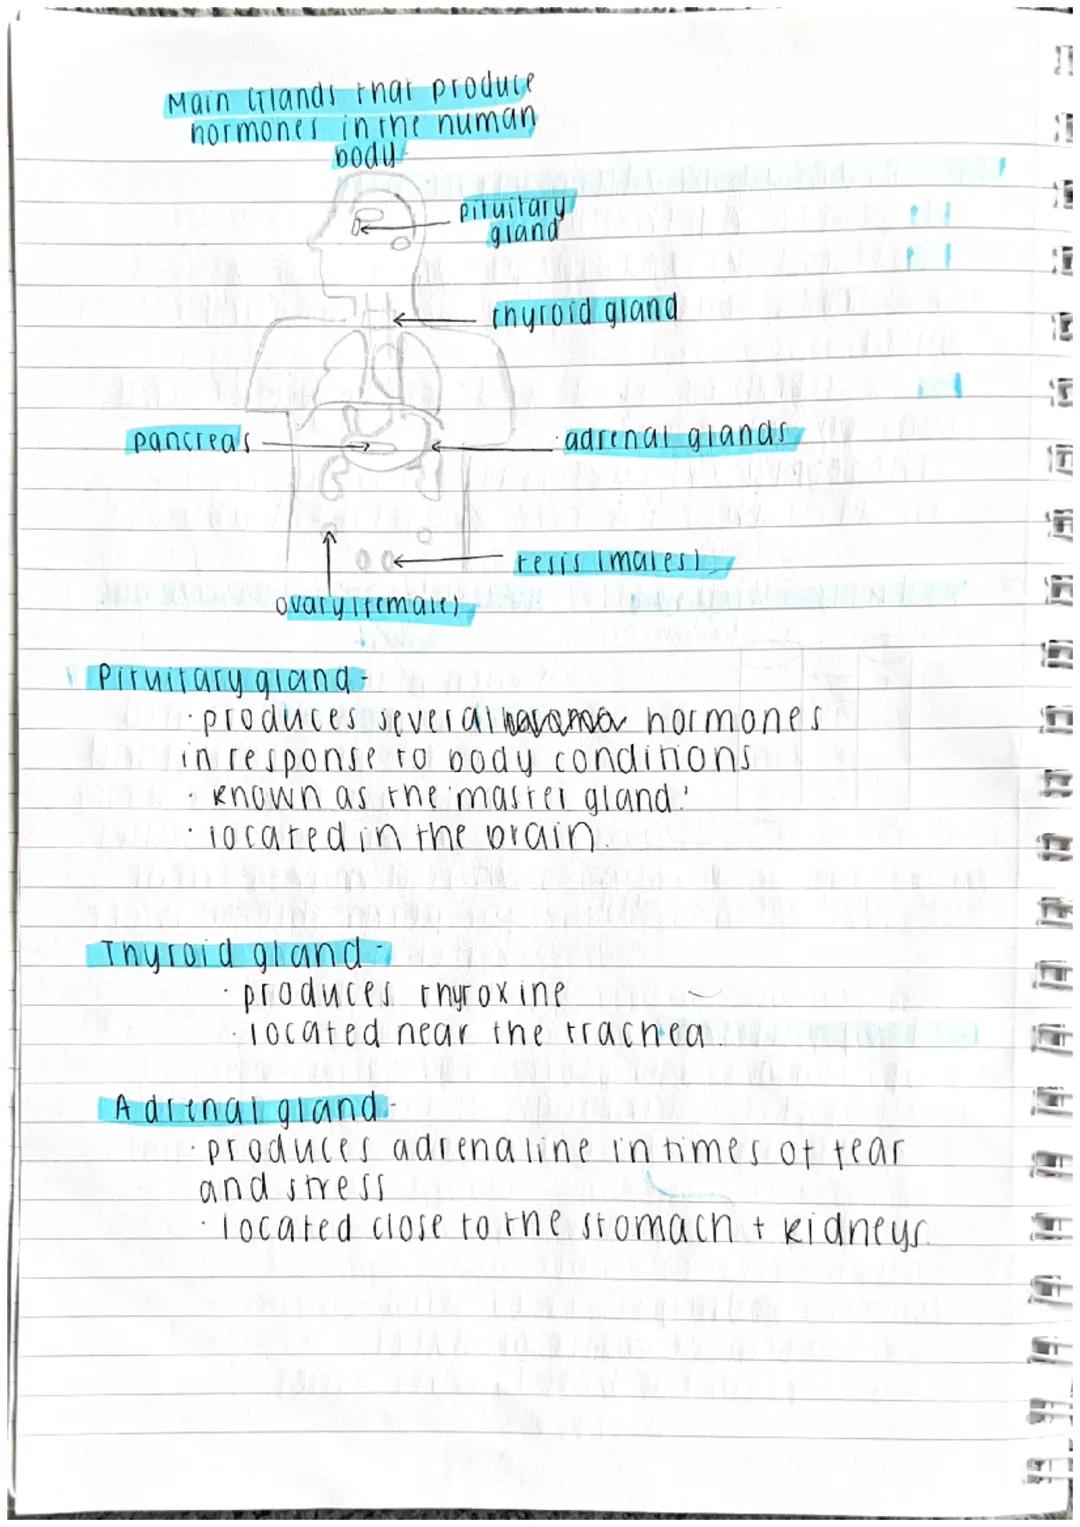 Main Glands that produce
hormones in the human
body
pituitary
gland
thyroid gland
pancreas
adrenal glands
testis (males)
ovary (female)
Pituitary gland-
· produces several hormones
in response to body conditions
· known as the 'master gland.'
· located in the brain.
Thyroid gland-
· produces thyroxine
· located near the trachea.
Adrenal gland-
· produces adrenaline in times of fear
and stress
· located close to the stomach + kidneys.